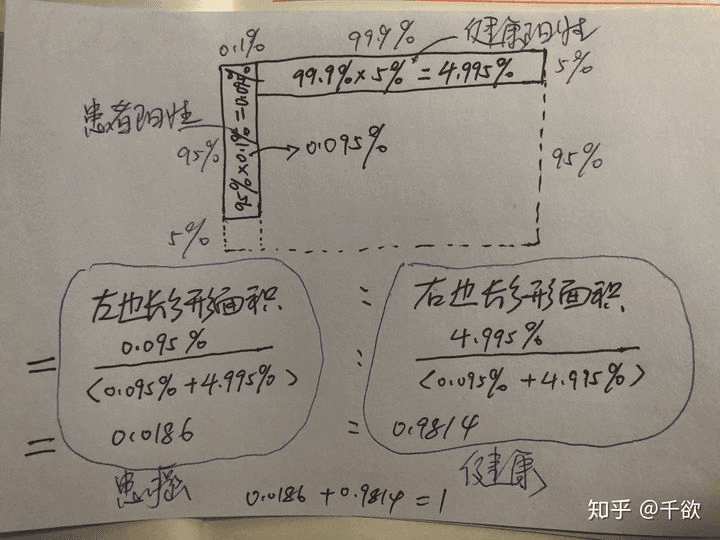 0.1% 99.9% 健康阳性
99.9%×5%=4.995% 5%
患者阳性
95%
95%×0.1%=0.095%
→0.095%
95%
5%
左边长方形面积 : 右边长方形面积
= 0.095% : 4.995%
(0.095%+4.995%) (0.095%+4.995%)
= 0.0186 = 0.9814
患癌 健康
0.0186+0.9814=1
知乎 @千欲